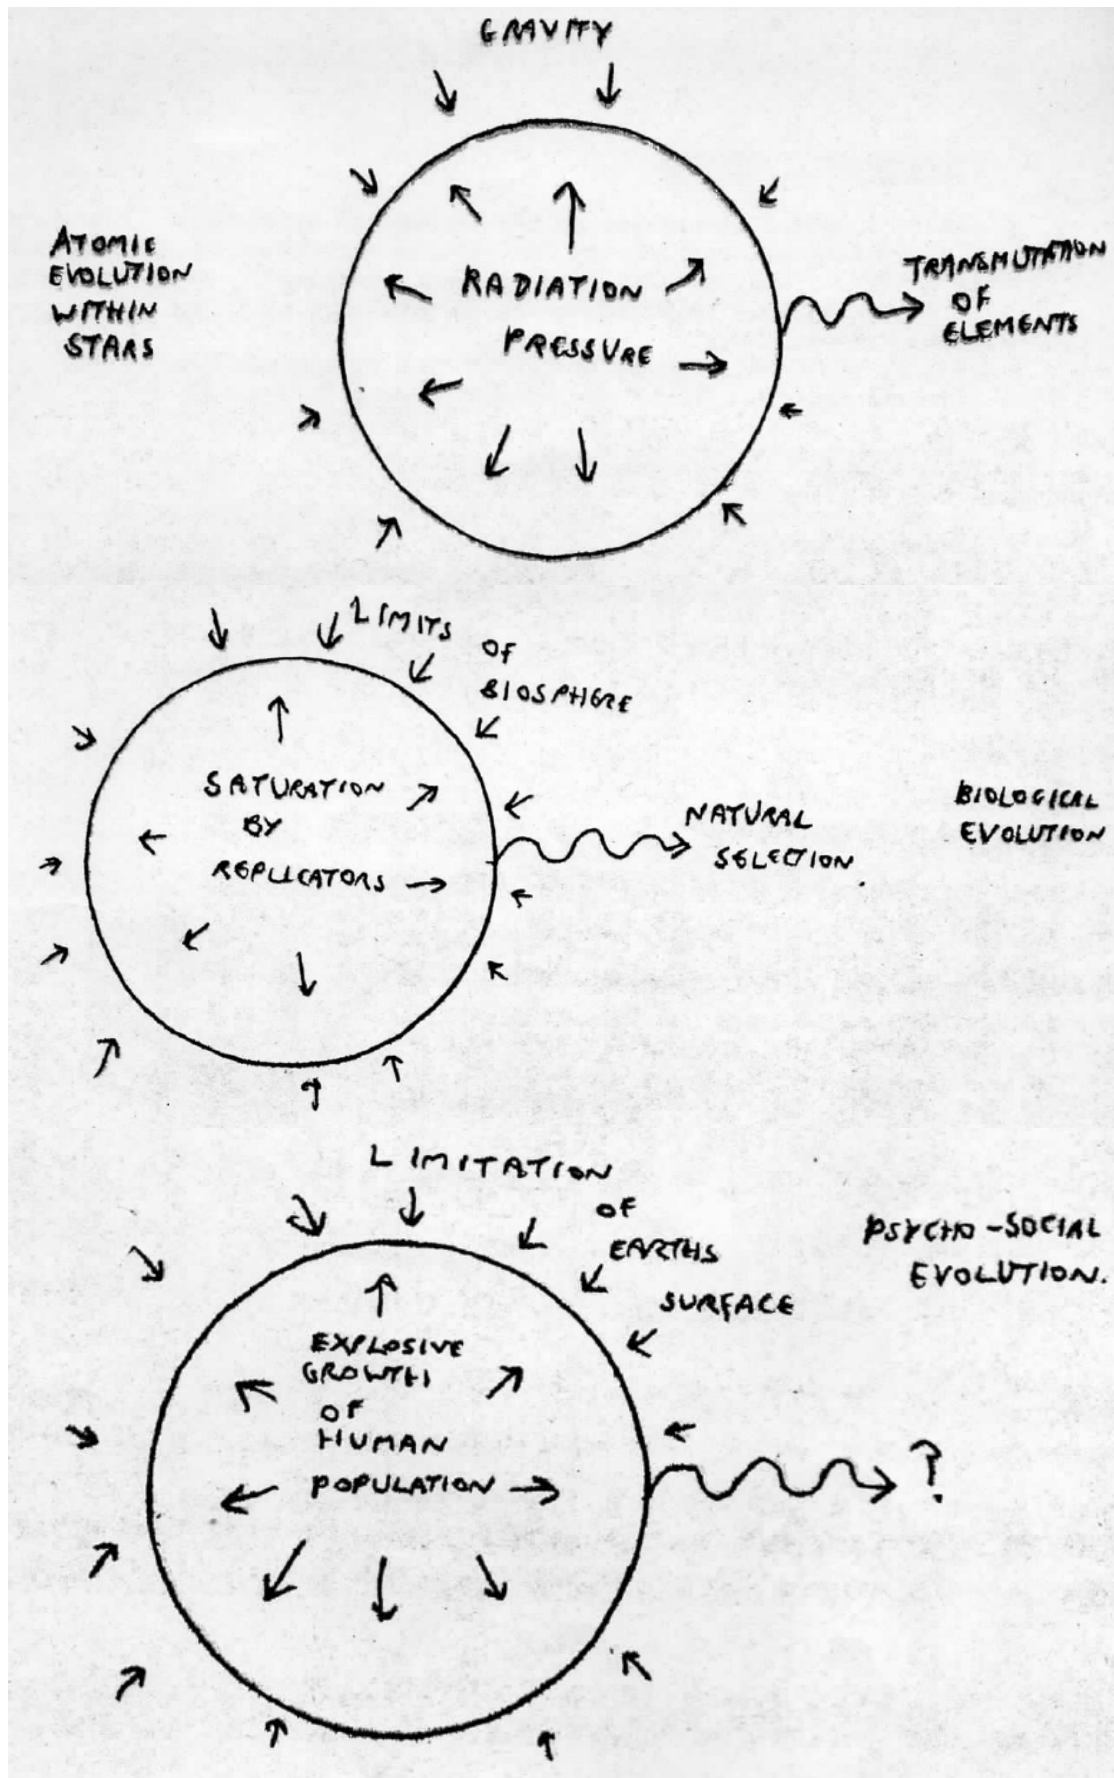 GRAVITY
ATOMIC
EVOLUTION
WITHIN
STARS
RADIATION
PRESSURE
TRANSMUTATION
OF
ELEMENTS
LIMITS
OF
BIOSPHERE
SATURATION
BY
REPLICATORS
NATURAL
SELECTION.
BIOLOGICAL
EVOLUTION
LIMITATION
OF
EARTHS
SURFACE
PSYCHO-SOCIAL
EVOLUTION.
EXPLOSIVE
GROWTH
OF
HUMAN
POPULATION
?